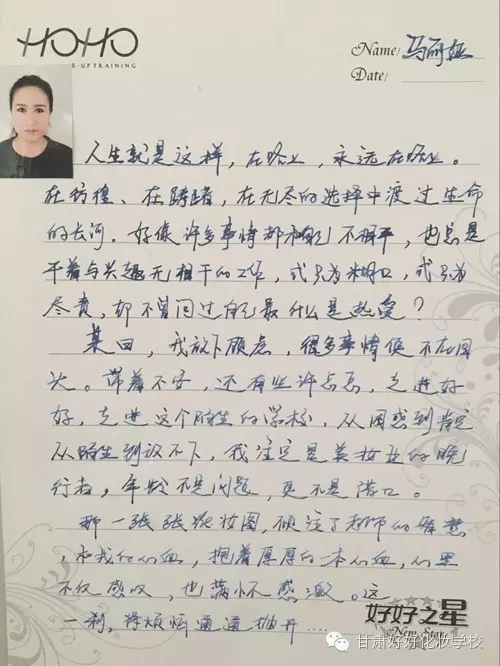 HOHO
E-UPTRAINING
Name/ 马丽娅
Date/
人生就是这样，在路上，永远在路上。
在彷徨、在踌躇，在无尽的选择中渡过生命
的长河。好像许多事情都和自己不相干，也总是
干着与兴趣无相干的工作，或只为糊口，或只为
尽责，却不曾问过自己最什么是热爱？
某日，我放下顾虑，很多事情便不在困
次。带着不安，还有些许忐忑，走进好
好，走进这个陌生的学校，从困惑到肯定
从陌生到放不下，我注定是美妆业的晚
行者，年龄不是问题，更不是借口。
那一张张妆图，倾注了老师的智慧
，和我的心血，抱着厚厚的一本心血，心里
不仅感叹，也满怀感激。这
一刹，将烦恼通通抛开....
好好之星
New Star
甘肃好好化妆学校